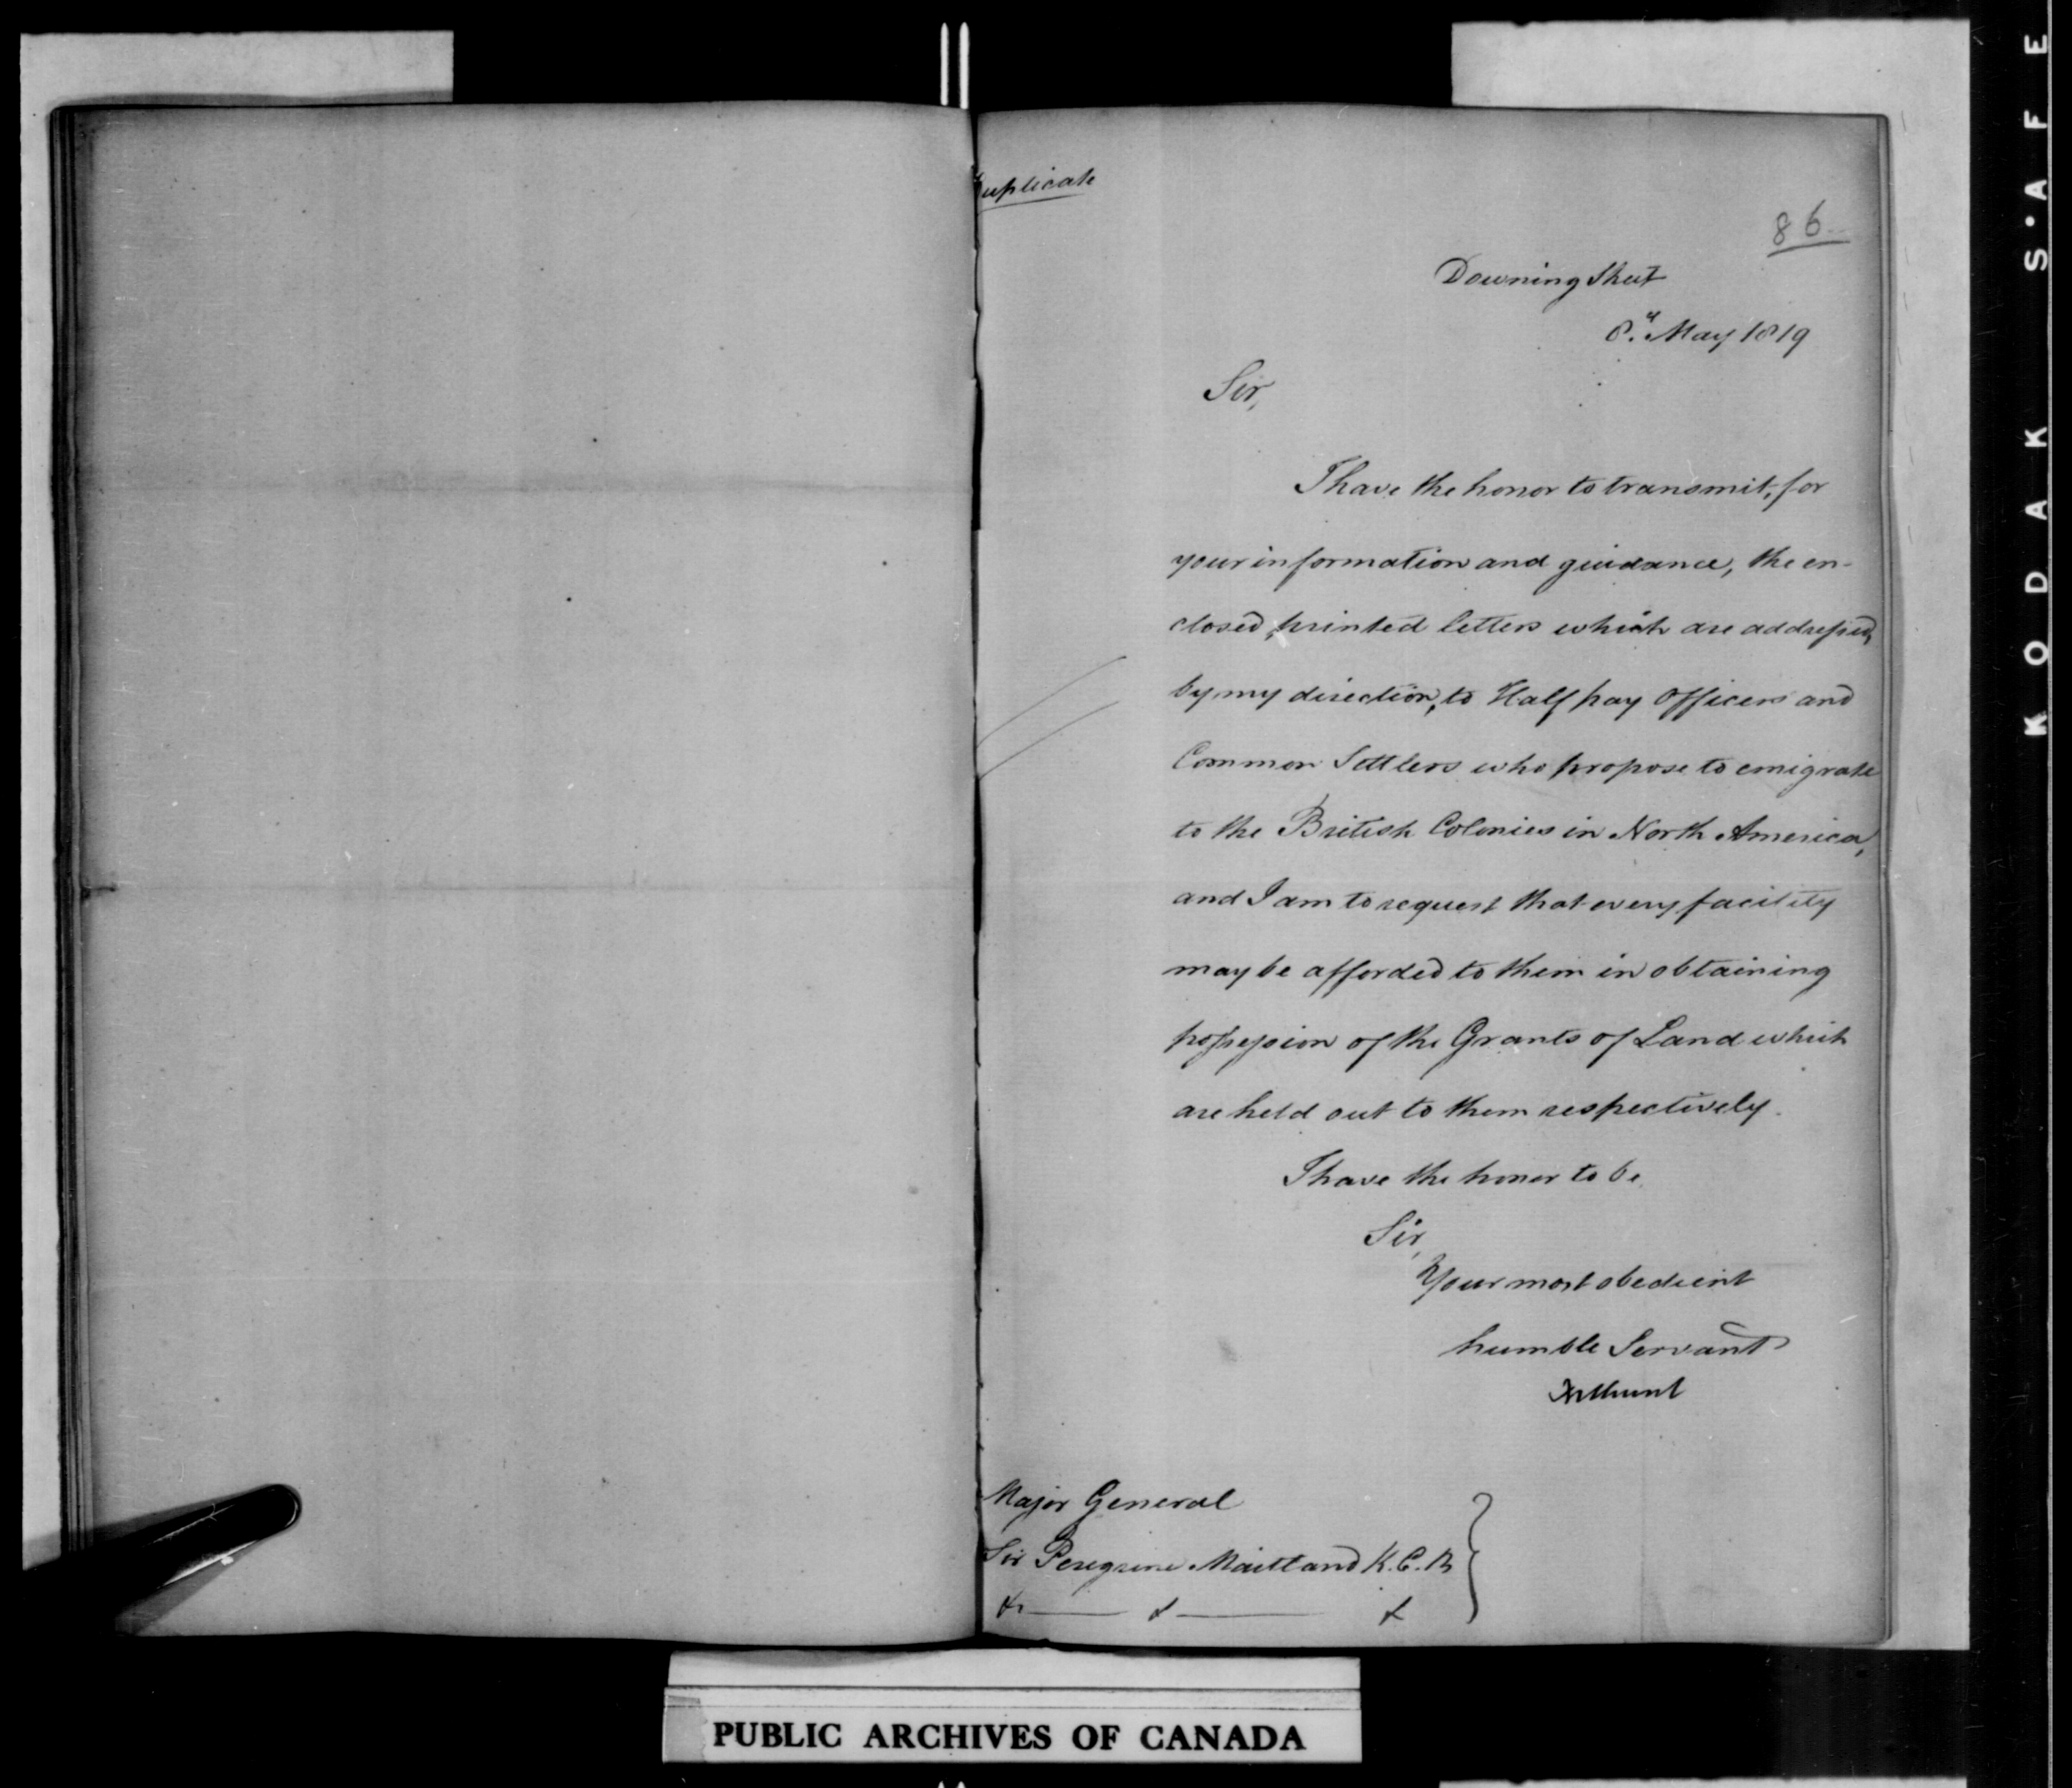 uplicate
86
Downing Street
8.th May 1819
Sir,
I have the honor to transmit, for
your information and guidance, the en-
closed, printed letters which are addressed,
by my direction, to Half pay Officers and
Common Settlers who propose to emigrate
to the British Colonies in North America,
and I am to request that every facility
may be afforded to them in obtaining
possession of the Grants of Land which
are held out to them respectively.
I have the honor to be
Sir,
Your most obedient
humble Servant
Bathurst
Major General
Sir Peregrine Maitland K.C.B
&c — & — &
PUBLIC ARCHIVES OF CANADA
KODAK S·AFE